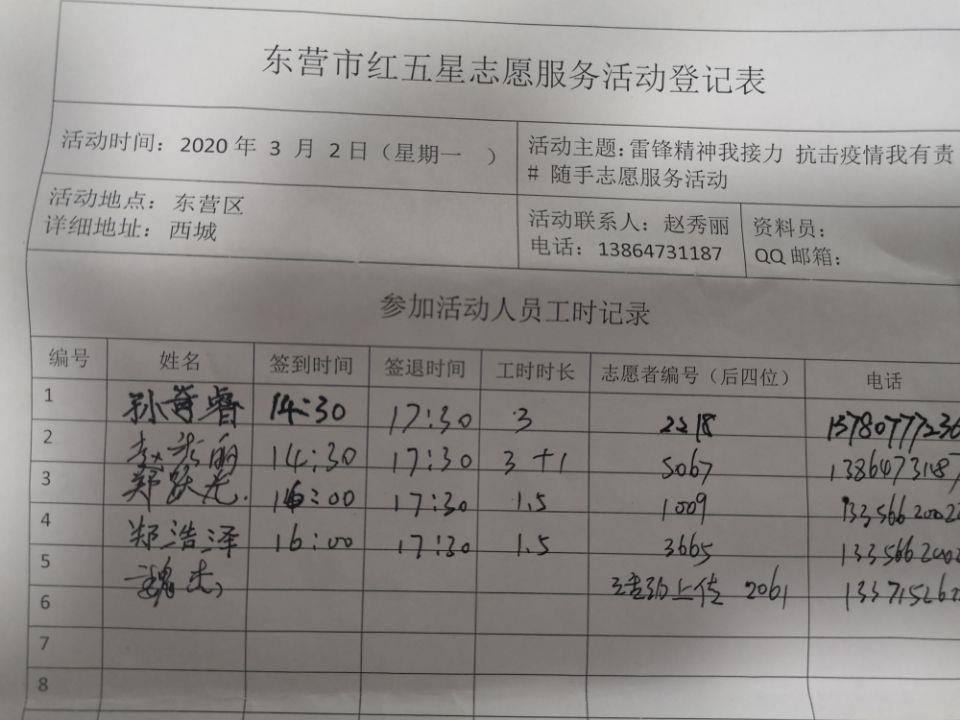 东营市红五星志愿服务活动登记表
活动时间：2020 年 3 月 2 日（星期一 ）
活动主题：雷锋精神我接力 抗击疫情我有责
# 随手志愿服务活动
活动地点： 东营区
详细地址： 西城
活动联系人：赵秀丽
电话：13864731187
资料员：
QQ 邮箱：
参加活动人员工时记录
编号 姓名 签到时间 签退时间 工时时长 志愿者编号（后四位） 电话
1 孙 睿 14:30 17:30 3 2218 1378077723
2 赵秀丽 14:30 17:30 3+1 5067 1386473118
3 郑跃光 16:00 17:30 1.5 1009 1335662002
4 郑浩泽 16:00 17:30 1.5 3665 133566200
5 魏杰 活动上传 2061 13371526
6
7
8